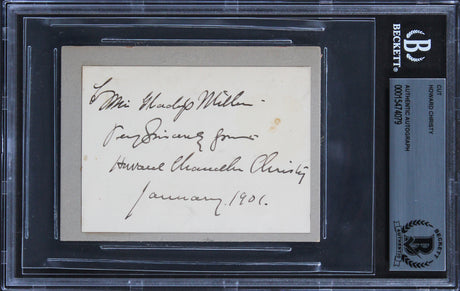 To Miss Gladys Miller
Very Sincerely Yours
Howard Chandler Christy
January. 1901.
BECKETT
CUT
HOWARD CHRISTY
AUTHENTIC AUTOGRAPH
00015474079
BECKETT
AUTHENTIC